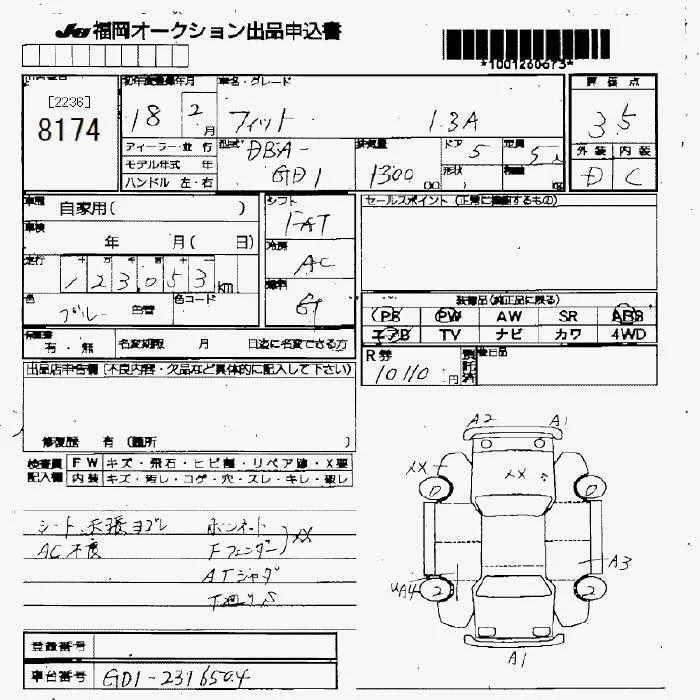 JU 福岡オークション出品申込書
*1001260673*
[2236]
8174
初年度登録年月
18 2月
車名・グレード
フィット 1.3A
評価点
3.5
ディーラー・並行
モデル年式 年
ハンドル 左・右
型式 DBA-GD1
排気量 1300 cc
ドア 5
形状
定員 5人
積載
外装 内装
D C
車歴 自家用( )
車検 年 月( 日)
走行 123,053 km
色 ブルー 色替 色コード
シフト FAT
冷房 AC
燃料 G
セールスポイント (正常に機能するもの)
装備品(純正品に限る)
PS PW AW SR ABS
エアB TV ナビ カワ 4WD
保証書 有・無 名変期限 月 日迄に名変できる方
R券 10110円 預託済 後日品
出品店申告欄(不良内容・欠品など具体的に記入して下さい)
修復歴 有(箇所 )
検査員記入欄
FW キズ・飛石・ヒビ割・リペア跡・X要
内装 キズ・汚レ・コゲ・穴・スレ・キレ・破レ
シート、天張ヨゴレ ボンネット
AC不良 Fフェンダー XX
ATジャダ
下廻りS
A2 A1
XX XX
0 0
A3
UA4 2 2
A1
登録番号
車台番号 GD1-2316504